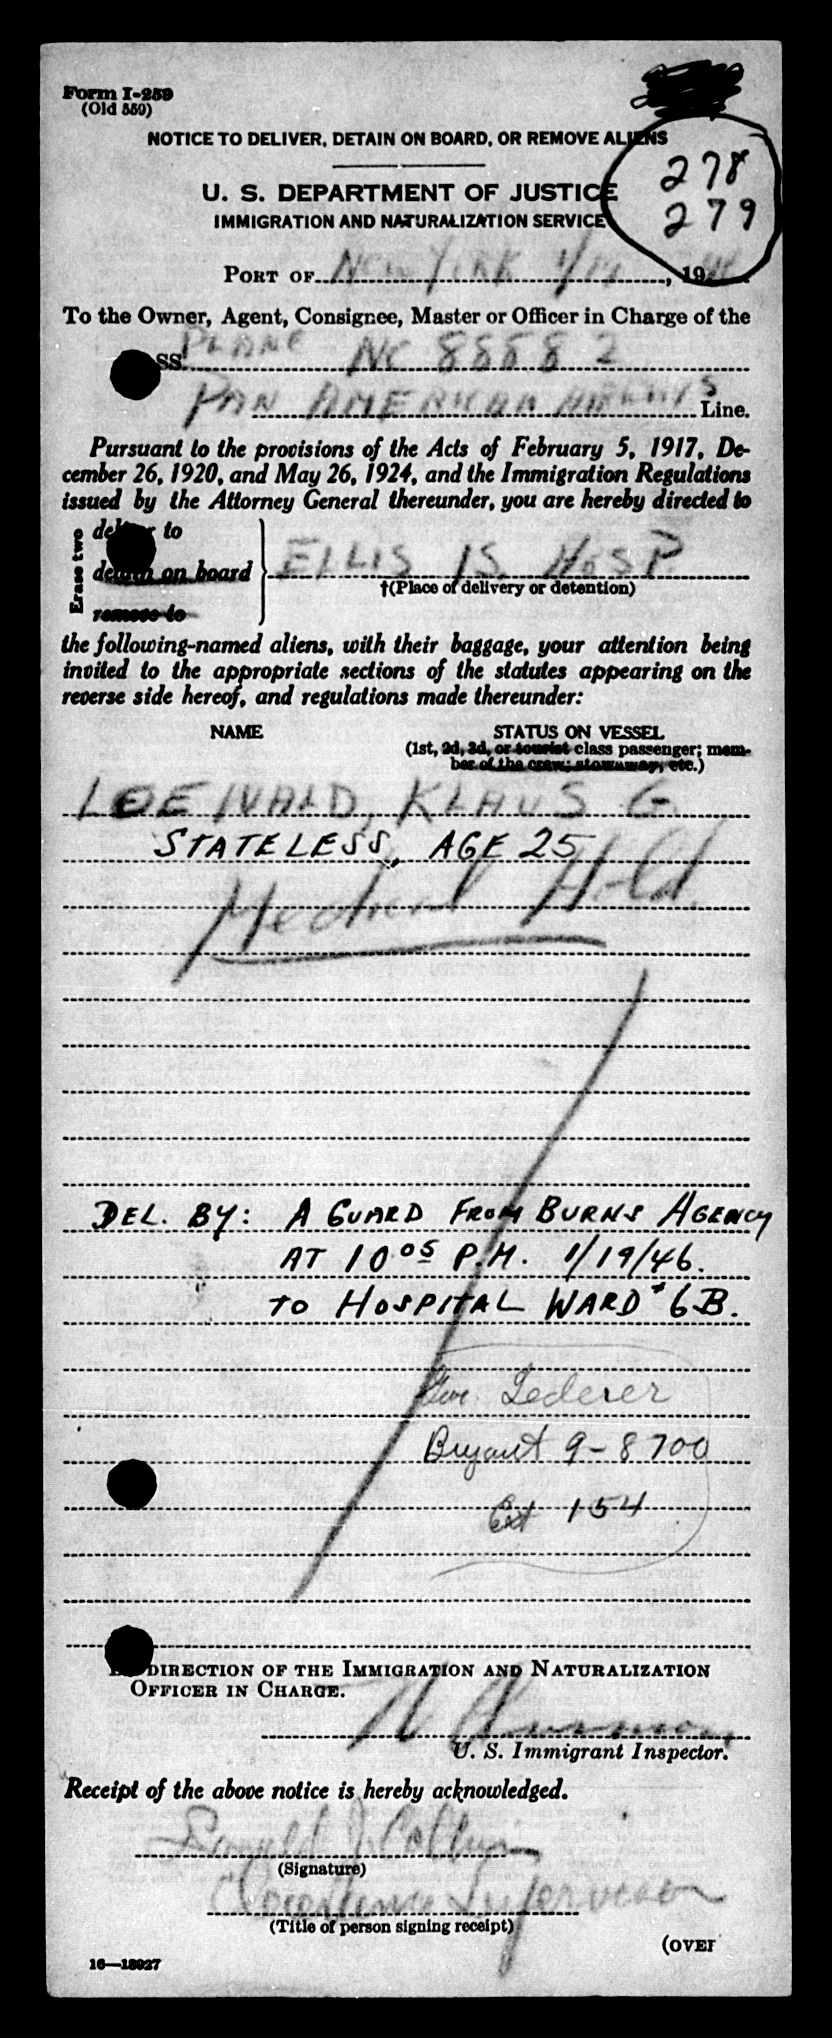 Form I-259
(Old 550)
NOTICE TO DELIVER, DETAIN ON BOARD, OR REMOVE ALIENS
278
279
U. S. DEPARTMENT OF JUSTICE
IMMIGRATION AND NATURALIZATION SERVICE
PORT OF NEW YORK 1/19, 1946
To the Owner, Agent, Consignee, Master or Officer in Charge of the
SS PLANE NC 88882
PAN AMERICAN AIRWAYS Line.
Pursuant to the provisions of the Acts of February 5, 1917, De-
cember 26, 1920, and May 26, 1924, and the Immigration Regulations
issued by the Attorney General thereunder, you are hereby directed to
Erase two
deliver to
detain on board
remove to
ELLIS IS. HOSP
†(Place of delivery or detention)
the following-named aliens, with their baggage, your attention being
invited to the appropriate sections of the statutes appearing on the
reverse side hereof, and regulations made thereunder:
NAME STATUS ON VESSEL
(1st, 2d, 3d, or tourist class passenger; mem-
ber of the crew; stowaway, etc.)
LOEWALD, KLAUS G
STATELESS, AGE 25
Medical Hold
DEL. BY: A GUARD FROM BURNS AGENCY
AT 10 05 P.M. 1/19/46.
TO HOSPITAL WARD # 6B.
Lederer
Bryant 9-8700
Ext 154
DIRECTION OF THE IMMIGRATION AND NATURALIZATION
OFFICER IN CHARGE.
U. S. Immigrant Inspector.
Receipt of the above notice is hereby acknowledged.
(Signature)
Supervisor
(Title of person signing receipt)
(OVER
16—18027